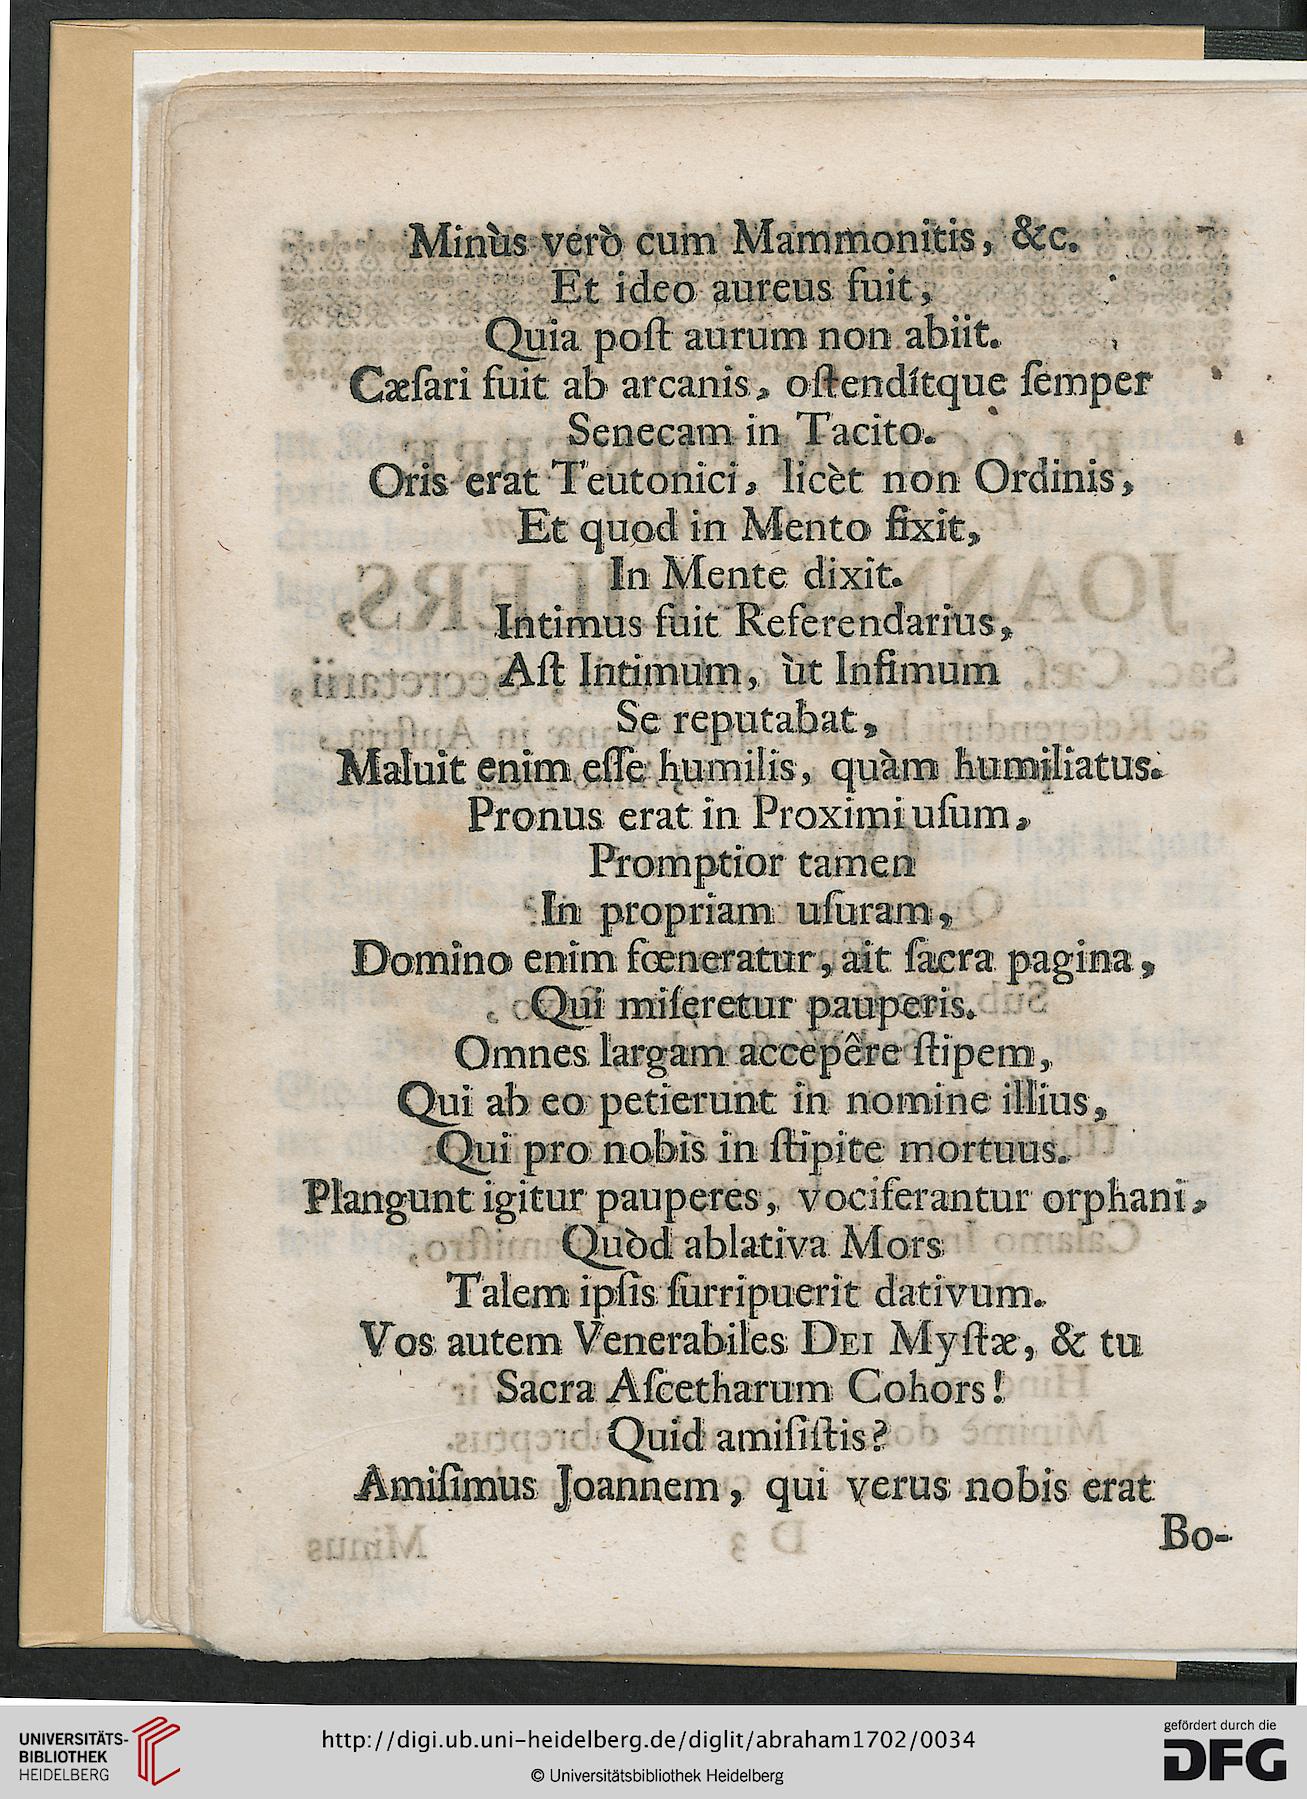 Minùs verò cum Mammonitis, &c.
Et ideo aureus fuit,
Quia poſt aurum non abiit.
Cæſari fuit ab arcanis, oſtendítque ſemper
Senecam in Tacito.
Oris erat Teutonici, licèt non Ordinis,
Et quod in Mento fixit,
In Mente dixit.
Intimus fuit Referendarius,
Aſt Intimum, ùt Infimum
Se reputabat,
Maluit enim eſſe humilis, quàm humiliatus.
Pronus erat in Proximi uſum,
Promptior tamen
In propriam uſuram,
Domino enim fœneratur, ait ſacra pagina,
Qui miſeretur pauperis.
Omnes largam accepêre ſtipem,
Qui ab eo petierunt in nomine illius,
Qui pro nobis in ſtipite mortuus.
Plangunt igitur pauperes, vociferantur orphani,
Quòd ablativa Mors
Talem ipſis ſurripuerit dativum.
Vos autem Venerabiles DEI Myſtæ, & tu
Sacra Aſcetharum Cohors!
Quid amiſiſtis?
Amiſimus Joannem, qui verus nobis erat
Bo-
UNIVERSITÄTS-
BIBLIOTHEK
HEIDELBERG
http://digi.ub.uni-heidelberg.de/diglit/abraham1702/0034
© Universitätsbibliothek Heidelberg
gefördert durch die
DFG